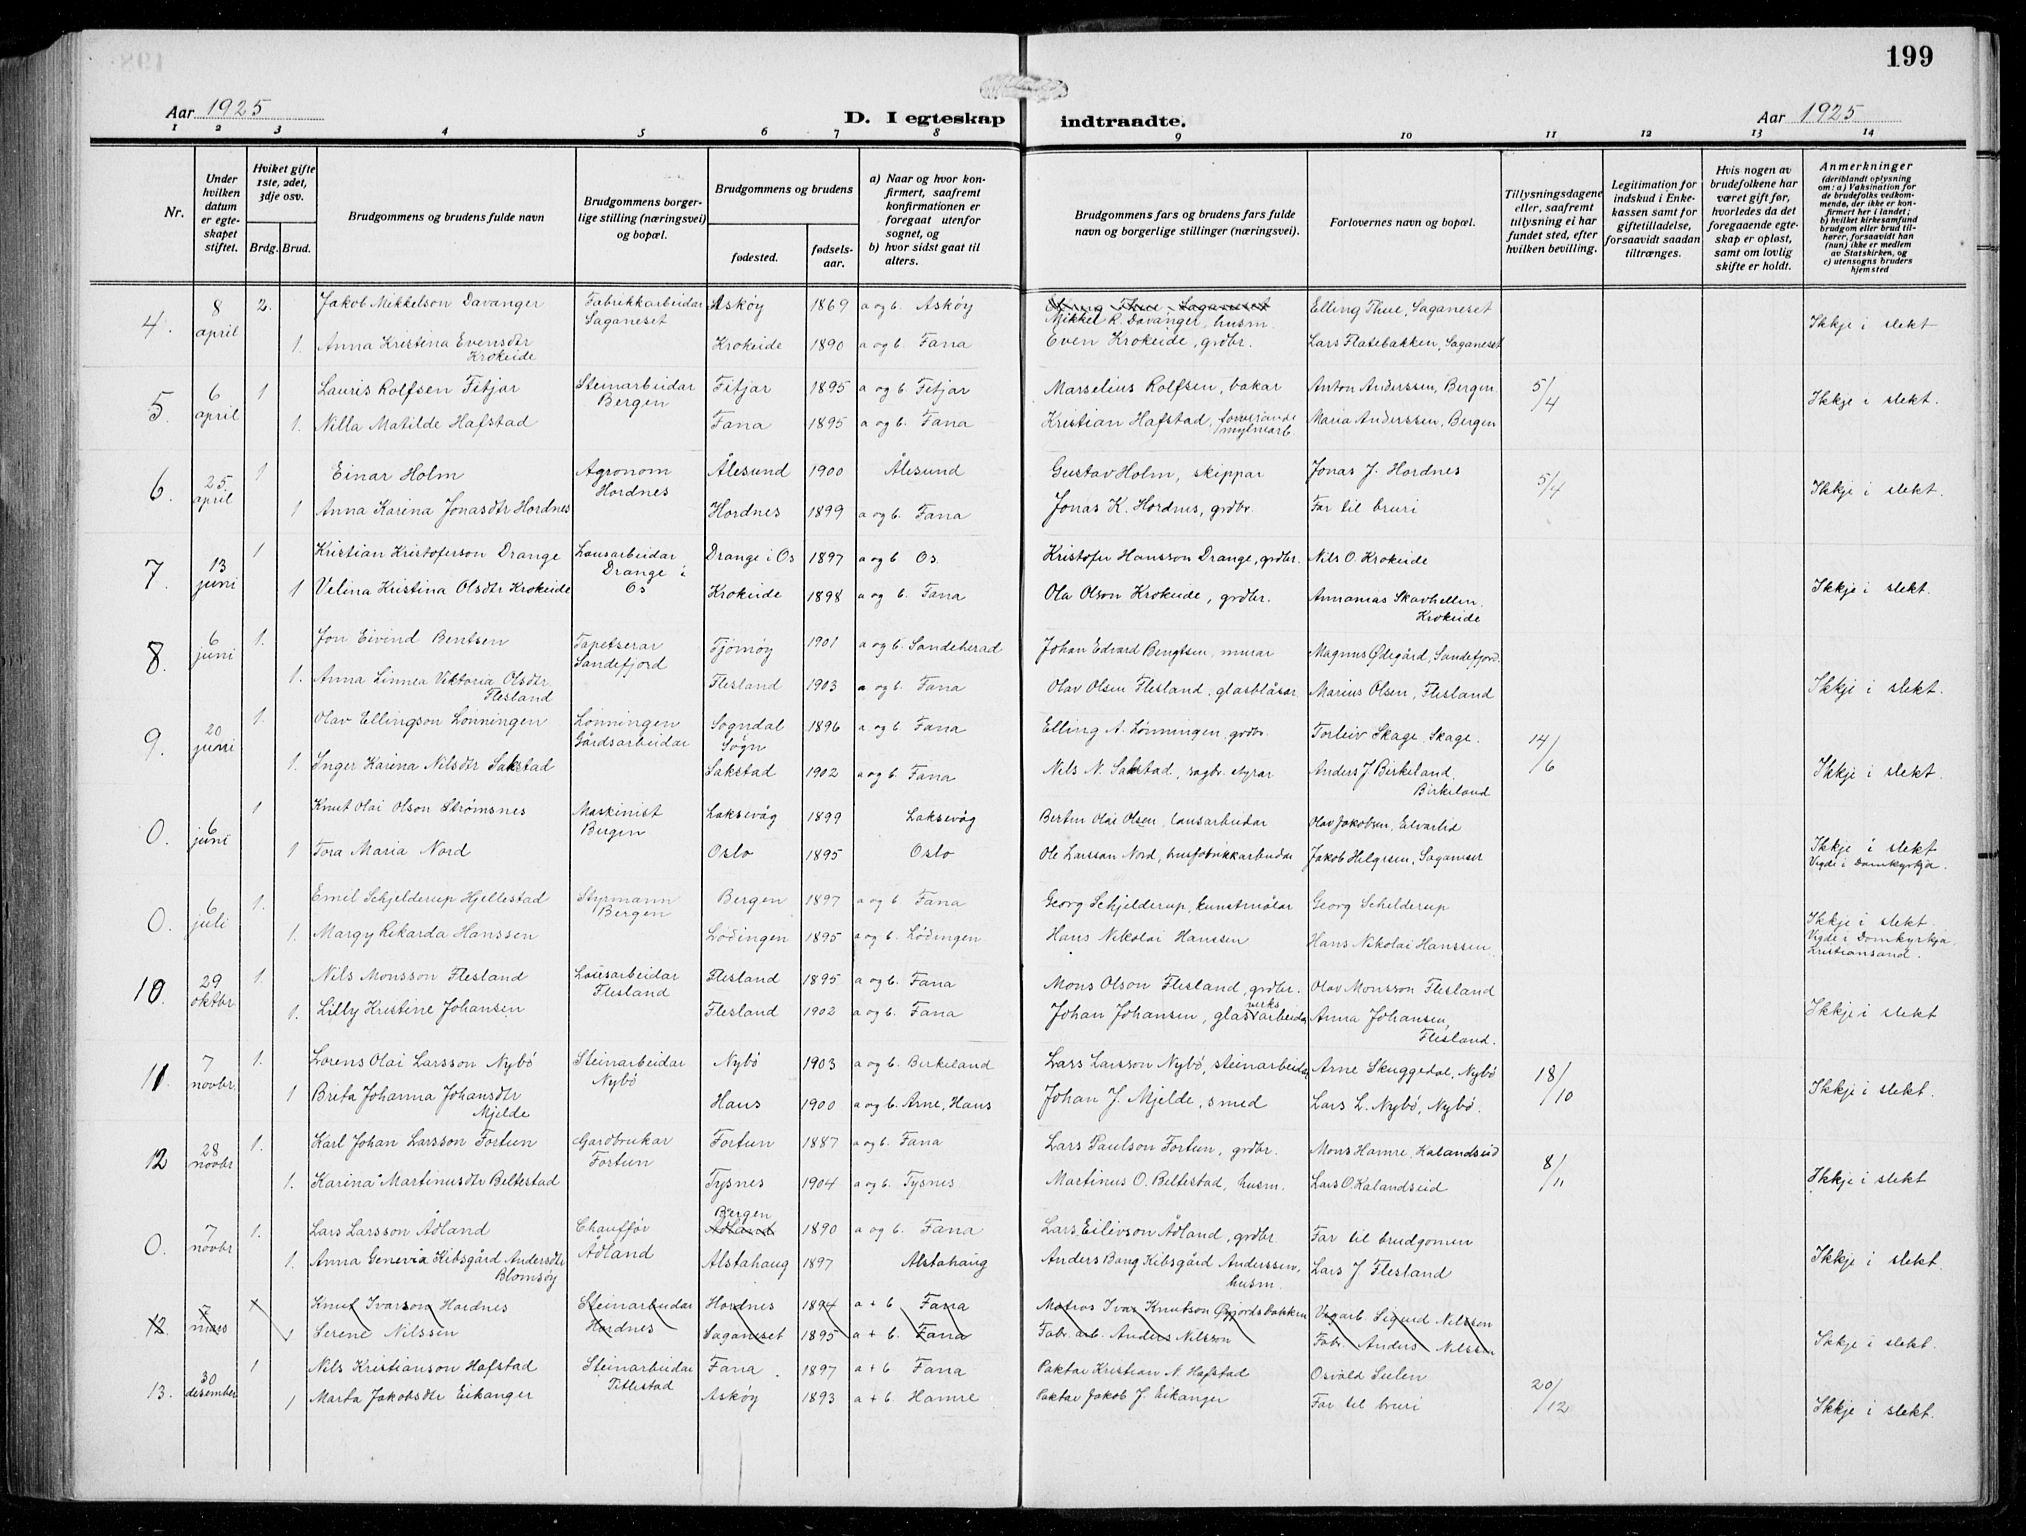 199
Aar 1925
D. I egteskap indtraadte.
Aar 1925
1 2 3 4 5 6 7 8 9 10 11 12 13 14
Nr.
Under hvilken datum er egte-skapet stiftet.
Hviket gifte 1ste, 2det, 3dje osv.
Brdg. Brud.
Brudgommens og brudens fulde navn
Brudgommens borger-lige stilling (næringsvei) og bopæl.
Brudgommens og brudens
fødested.
fødsels-aar.
a) Naar og hvor kon-firmert, saafremt konfirmationen er foregaat utenfor sognet, og
b) hvor sidst gaat til alters.
Brudgommens fars og brudens fars fulde navn og borgerlige stillinger (næringsvei).
Forlovernes navn og bopæl.
Tillysningsdagene eller, saafremt tillysning ei har fundet sted, efter hvilken bevilling.
Legitimation for indskud i Enke-kassen samt for giftetilladelse, forsaavidt saadan tiltrænges.
Hvis nogen av brudefolkene har været gift før, hvorledes da det foregaaende egte-skap er opløst, samt om lovlig skifte er holdt.
Anmerkninger
(deriblandt oplysning om: a) Vaksination for de brudefolks vedkom-mende, der ikke er kon-firmert her i landet; b) hvilket kirkesamfund brudgom eller brud til-hører, forsaavidt han (nun) ikke er medlem av Statskirken, og c) utensogns bruders hjemsted
4. 8 april 2. Jakob Mikkelson Davanger Fabrikkarbeidar Saganeset Askøy 1869 a og b. Askøy Mikkel R. Davanger, husm. Elling Thue, Saganeset Ikkje i slekt
1. Anna Kristina Evensdtr Krokeide Krokeide 1890 a og b. Fana Even Krokeide, grdbr. Lars Flatebakken, Saganeset
5. 6 april 1 Lauris Rolfsen Fitjar Steinarbeidar Bergen Fitjar 1895 a og b. Fitjar Marselius Rolfsen, bakar Anton Anderssen, Bergen 5/4 Ikkje i slekt.
1. Nilla Matilde Hafstad Fana 1895 a og b. Fana Kristian Hafstad, Maria Anderssen, Bergen
6. 25 april 1 Einar Holm Agronom Hordnes Ålesund 1900 Ålesund Gustav Holm, skippar Jonas J. Hordnes 5/4 Ikkje i slekt.
1 Anna Karina Jonasdtr Hordnes Hordnes 1899 a og b. Fana Jonas K. Hordnes, grdbr. Far til bruri
7. 13 juni 1 Kristian Kristoferson Drange Lausarbeidar Drange i Os Drange i Os 1897 a og b. Os. Kristofer Hansson Drange, grdbr. Nils O. Krokeide Ikkje i slekt.
1 Velina Kristina Olsdtr Krokeide Krokeide 1898 a og b. Fana Ola Olson Krokeide, grdbr. Annanias Skavhellen. Krokeide
8. 6 juni 1. Jon Eivind Bentsen Tapetserar Sandefjord Tjømøy 1901 a og b. Sandeherad Johan Edvard Bengtsen, murar Magnus Ødegård, Sandefjord. Ikkje i slekt.
1. Anna Linnea Viktoria Olsdtr Flesland Flesland 1903 a og b. Fana Olav Olsen Flesland, glasblåsar. Marius Olsen, Flesland
9. 20 juni 1. Olav Ellingson Lønningen Lønningen Gårdsarbeidar Sogndal Sogn 1896 a. og b. Fana Elling A. Lønningen, grdbr. Torleiv Skage, Skage. 14/6 Ikkje i slekt.
1. Inger Karina Nilsdtr Sakstad Sakstad 1902 a og b. Fana Nils N. Sakstad, Anders J Birkeland, Birkeland
0. 6 juni 1 Knut Olai Olson Strømsnes Maskinist Bergen Laksevåg 1899 Laksevåg Bertin Olai Olsen, lausarbeidar Olav Jakobsen, Ikkje i slekt Vigde i Domkyrkja.
1 Tora Maria Nord Oslo 1895 Oslo Ole Larsson Nord, Jakob Helgesen, Saganeset
0. 6 juli 1. Emil Schjelderup Hjellestad Styrmann Bergen Bergen 1897 a og b. Fana Georg Schjelderup, kunstmålar Georg Schelderup Ikkje i slekt.
1. Margy Rikarda Hanssen Lødingen 1895 a og b. Lødingen Hans Nikolai Hanssen Hans Nikolai Hanssen. Vigde i Domkyrkja. Kristiansand.
10. 29 oktbr 1. Nils Monsson Flesland Lausarbeidar Flesland Flesland 1895 a og b. Fana Mons Olson Flesland, grdbr. Olav Monsson Flesland Ikkje i slekt
1. Lilly Kristine Johansen Flesland 1902 a og b. Fana Johan Johansen, glasverksarbeidar Anna Johansen, Flesland.
11. 7 novbr. 1. Lorens Olai Larsson Nybø Steinarbeidar Nybø Nybø 1903 a og b. Birkeland Lars Larsson Nybø, steinarbeidar Arne Skuggedal, Nybø 18/10 Ikkje i slekt.
1 Brita Johanna Johansdtr Mjelde Haus 1900 a og b. Arne, Haus Johan J. Mjelde, smed Lars L. Nybø, Nybø.
12 28 novbr 1. Karl Johan Larsson Fortun Gardbrukar Fortun Fortun 1887 a og b. Fana Lars Paulson Fortun, grdbr. Mons Hamre, Kalandseid 8/11 Ikkje i slekt
1. Karina Martinusdtr Beltestad Tysnes 1904 a og b. Tysnes Martinus O. Beltestad, husm. Lars O. Kalandseid
0. 7 novbr 1. Lars Larsson Ådland Chauffør Ådland Bergen Ådland 1890 a og b. Fana Lars Eilivson Ådland, grdbr. Far til brudgomen Ikkje i slekt.
1. Anna Genevia Kibsgård Andersdtr Blomsøy Alstahaug 1897 Alstahaug Anders Bang Kibsgård Anderssen, husm. Lars J Flesland
12. 7 mars 1 Knut Ivarson Hordnes Steinarbeidar Hordnes Hordnes 1894 a + b. Fana Matros Ivar Knutson Sigurd Nilssen Ikkje i slekt.
1 Serene Nilssen Saganeset 1895 a + b. Fana Fabr. arb. Anders Nilsson Fabr. Anders Nilssen
13. 30 desember 1 Nils Kristianson Hafstad Steinarbeidar Titlestad Fana 1897 a + b Fana Paktar Kristian N. Hafstad Osvald Sælen 20/12 Ikkje i slekt.
1 Marta Jakobsdtr Eikanger Askøy 1893 a + b. Hamre Paktar Jakob J. Eikanger Far til bruri